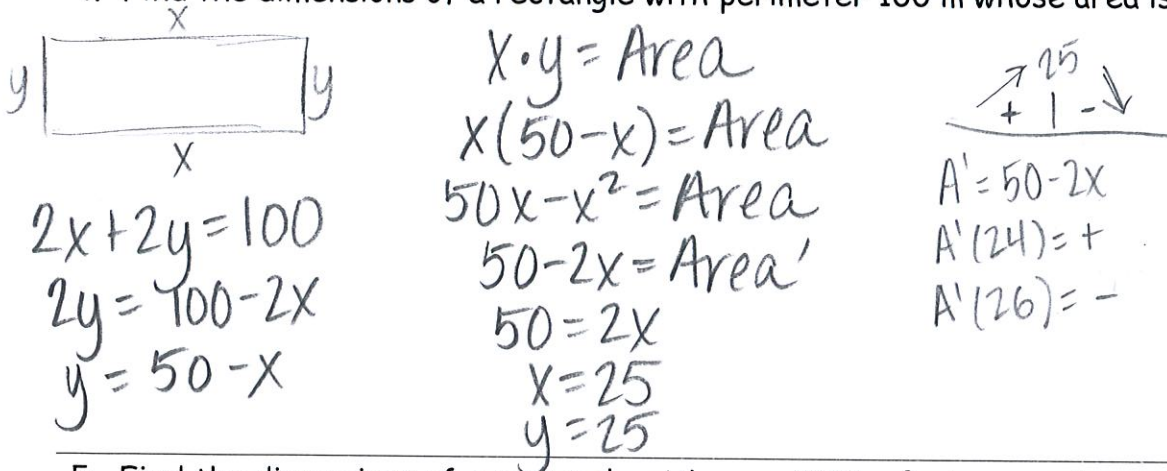 Find the dimensions of a rectangle with perimeter 100 m whose area is
x
y
y
x
2x+2y=100
2y=100-2x
y=50-x
x•y=Area
x(50-x)=Area
50x-x²=Area
50-2x=Area'
50=2x
x=25
y=25
↗ 25 ↘
+ | -
A'=50-2x
A'(24)=+
A'(26)=-
5. Find the dimensions of a